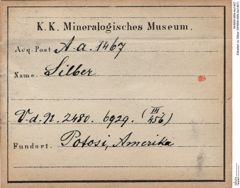 K. K. Mineralogisches Museum.
Acq. Post A. a. 1467
Name. Silber
V. d. N. 2480. 6929. (III/456)
Fundort. Potosi, Amerika